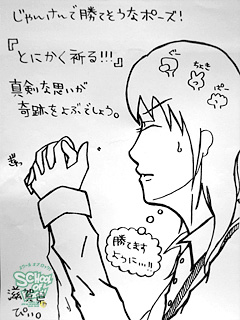 じゃんけんで勝てそうなポーズ!
『とにかく祈る!!!』
真剣な思いが
奇跡をよぶでしょう。
ぐー
ちょき
ぱー
ぎゅっ
勝てます
ように…!!
SCHOOL OF LOCK!
滋賀県
ぴぃ。